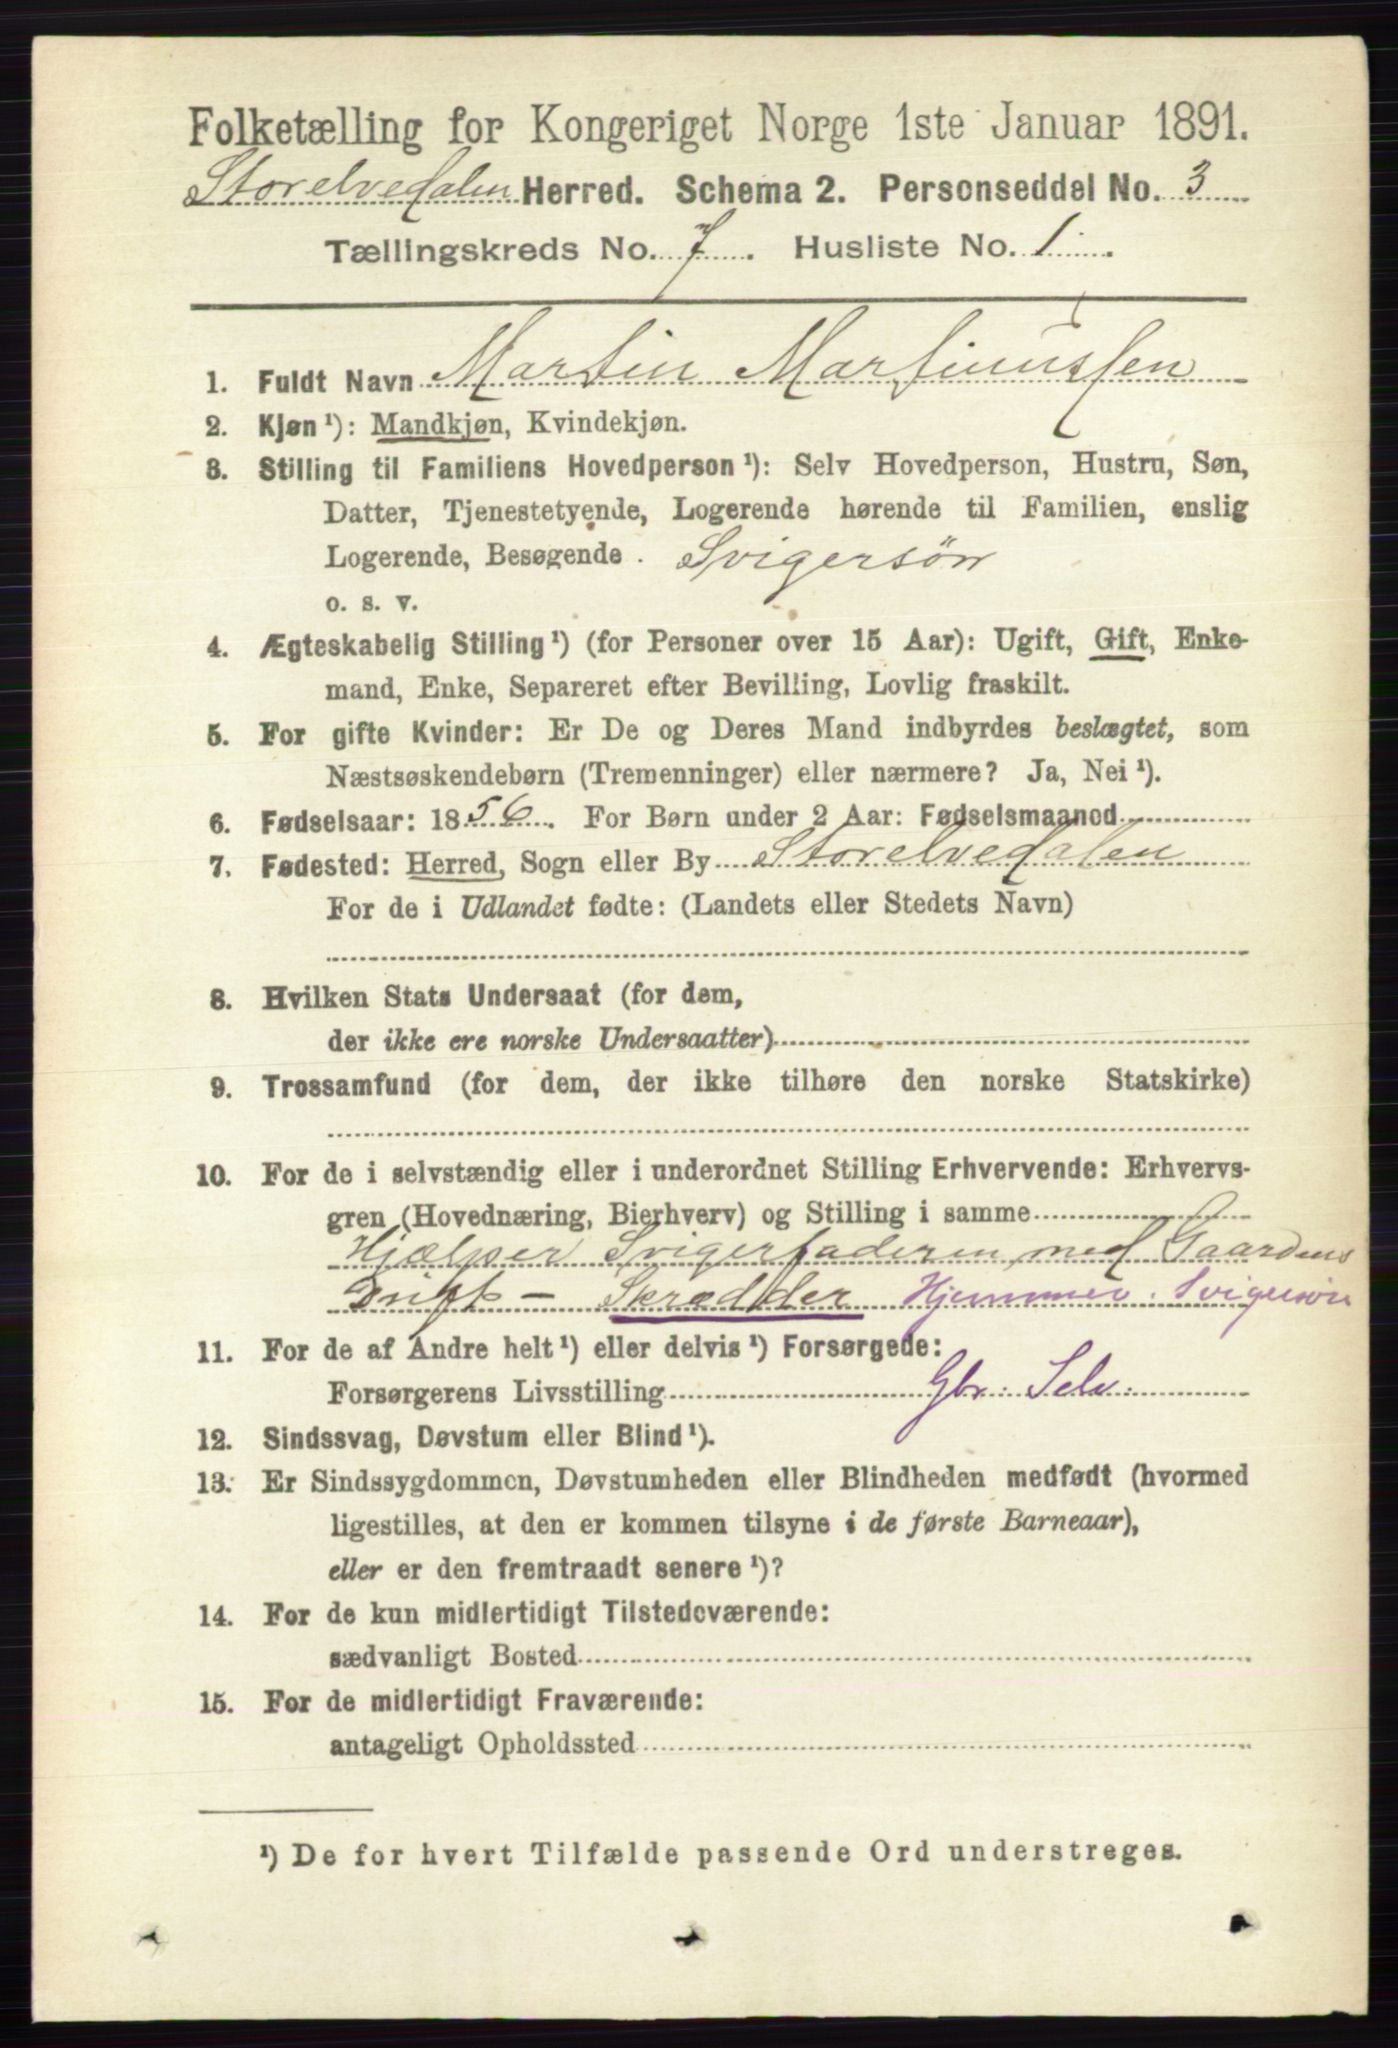 Folketælling for Kongeriget Norge 1ste Januar 1891.
Storelvedalen Herred. Schema 2. Personseddel No. 3
Tællingskreds No. 7. Husliste No. 1.
1. Fuldt Navn Martin Martinussen
2. Kjøn¹): Mandkjøn, Kvindekjøn.
3. Stilling til Familiens Hovedperson¹): Selv Hovedperson, Hustru, Søn,
Datter, Tjenestetyende, Logerende hørende til Familien, enslig
Logerende, Besøgende. Svigersön
o. s. v.
4. Ægteskabelig Stilling¹) (for Personer over 15 Aar): Ugift, Gift, Enke-
mand, Enke, Separeret efter Bevilling, Lovlig fraskilt.
5. For gifte Kvinder: Er De og Deres Mand indbyrdes beslægtet, som
Næstsøskendebørn (Tremenninger) eller nærmere? Ja, Nei¹).
6. Fødselsaar: 1856. For Børn under 2 Aar: Fødselsmaaned
7. Fødested: Herred, Sogn eller By Storelvedalen
For de i Udlandet fødte: (Landets eller Stedets Navn)
8. Hvilken Stats Undersaat (for dem,
der ikke ere norske Undersaatter)
9. Trossamfund (for dem, der ikke tilhøre den norske Statskirke)
10. For de i selvstændig eller i underordnet Stilling Erhvervende: Erhvervs-
gren (Hovednæring, Bierhverv) og Stilling i samme
Hjælper Svigerfaderen med Gaardens
Drift - Skrædder Hjemmev. Svigersön
11. For de af Andre helt¹) eller delvis¹) Forsørgede:
Forsørgerens Livsstilling Gbr. Selv.
12. Sindssvag, Døvstum eller Blind¹).
13. Er Sindssygdommen, Døvstumheden eller Blindheden medfødt (hvormed
ligestilles, at den er kommen tilsyne i de første Barneaar),
eller er den fremtraadt senere¹)?
14. For de kun midlertidigt Tilstedeværende:
sædvanligt Bosted
15. For de midlertidigt Fraværende:
antageligt Opholdssted
¹) De for hvert Tilfælde passende Ord understreges.